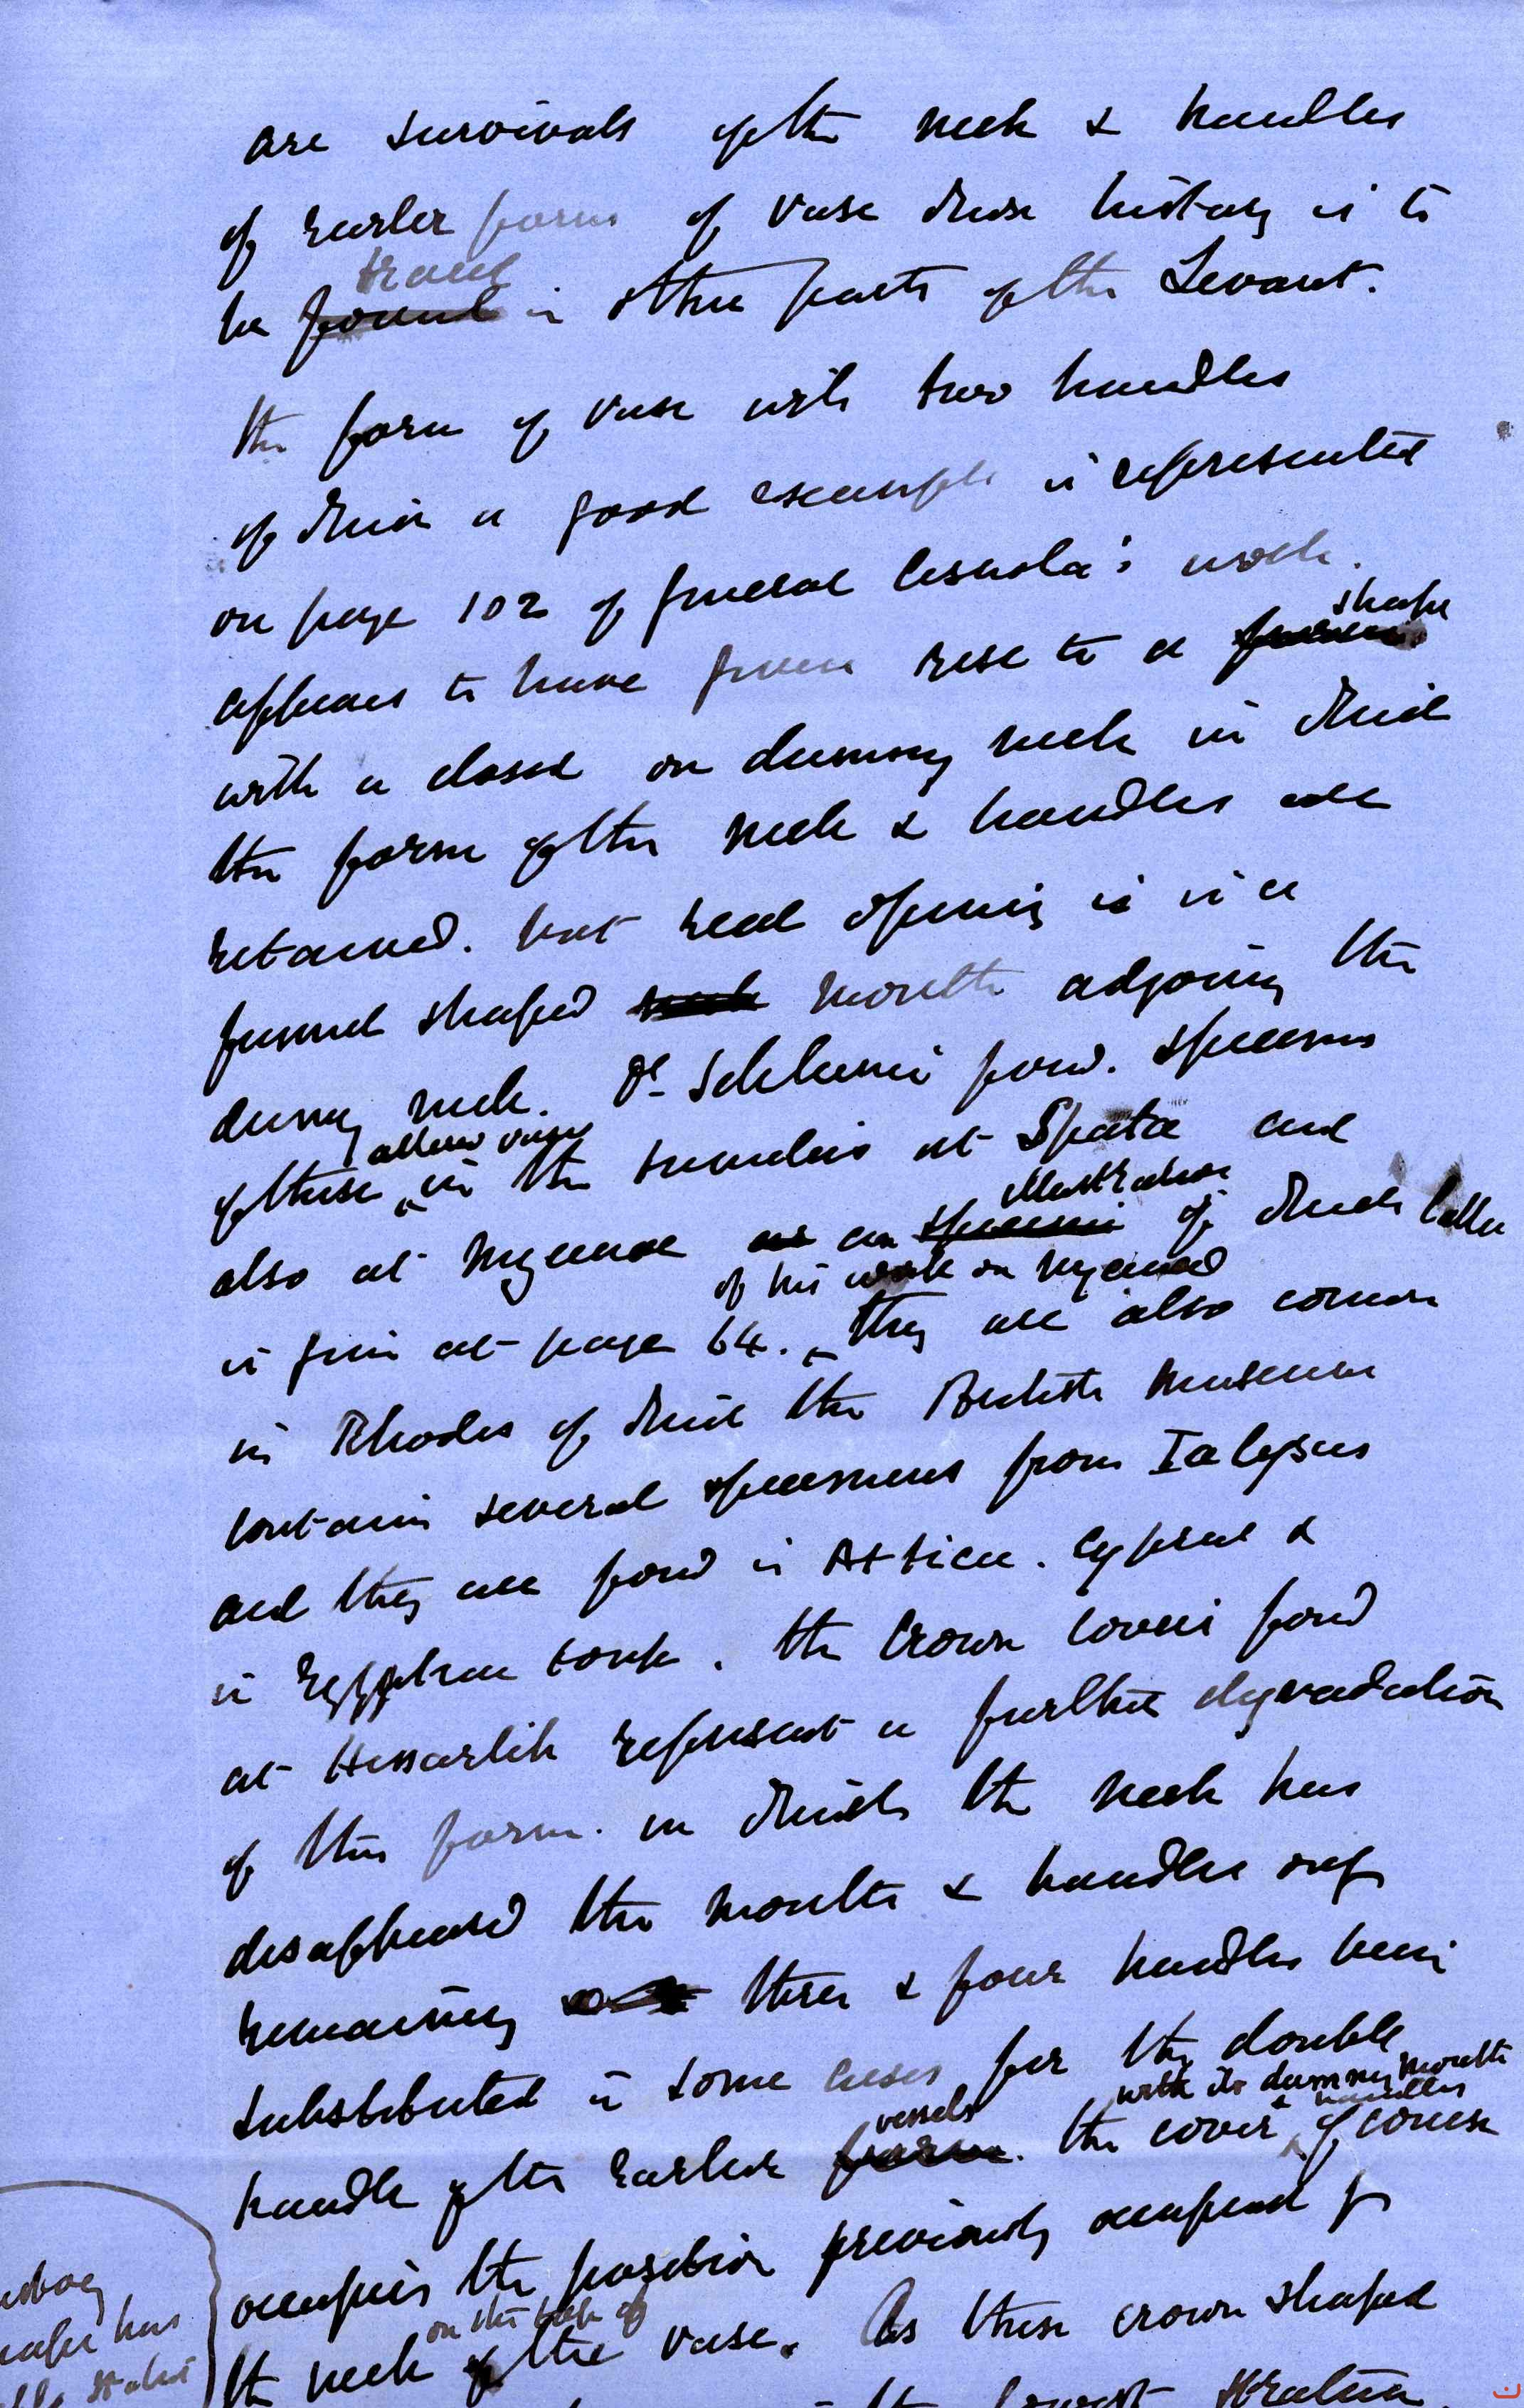 are survivals of the neck & handles
of earlier forms of vase whose history is to
be found traced in other parts of the Levant.
the form of vase with two handles
of which a good example is represented
on page 102 of General Cesnola's work.
appears to have given rise to a form shape
with a closed or dummy neck in which
the form of the neck & handles are
retained. but real opening is in a
funnel shaped neck mouth adjoining the
dummy neck. Dr Schliemann found specimens
of these in the tumulus at Spata and
also at Mycenae as an specimen illustration of which latter
is given at page 64. of his work on Mycenae they are also common
in Rhodes of which the British Museum
contains several specimens from Ialysus
and they are found in Attica. Cyprus &
in Egyptian tombs. the crown covers found
at Hissarlik represent a further degradation
of this form. in which the neck has
disappeared the mouth & handles only
remaining three & four handles being
substituted in some cases for the double
handle of the earlier form vessels. the cover with its dummy mouth & handles of course
occupies the position previously occupied by
the neck on the top of the vase. As these crown shaped
has
the lowest stratum